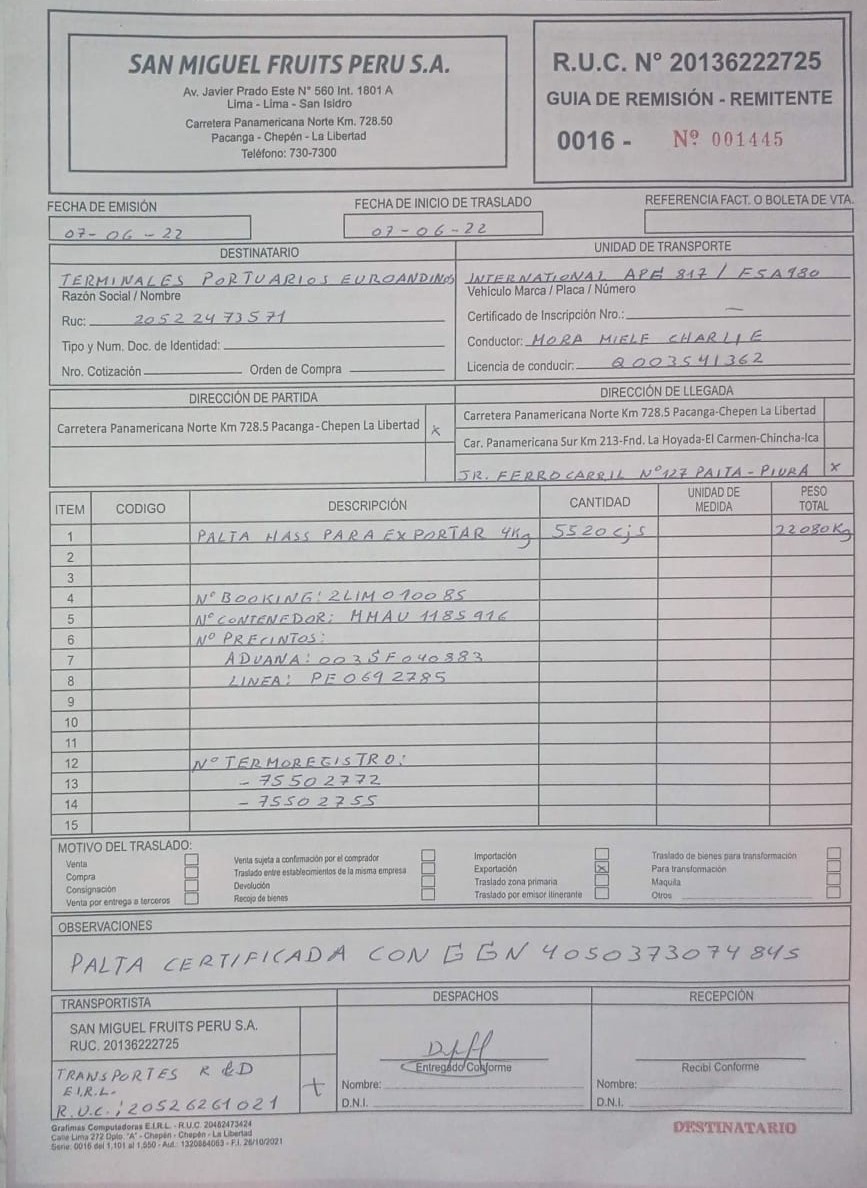 SAN MIGUEL FRUITS PERU S.A.
Av. Javier Prado Este N° 560 Int. 1801 A
Lima - Lima - San Isidro
Carretera Panamericana Norte Km. 728.50
Pacanga - Chepén - La Libertad
Teléfono: 730-7300
R.U.C. N° 20136222725
GUIA DE REMISIÓN - REMITENTE
0016 - Nº 001445
FECHA DE EMISIÓN
07-06-22
FECHA DE INICIO DE TRASLADO
07-06-22
REFERENCIA FACT. O BOLETA DE VTA.
DESTINATARIO
TERMINALES PORTUARIOS EUROANDINOS
Razón Social / Nombre
Ruc: 20522473571
Tipo y Num. Doc. de Identidad:
Nro. Cotización Orden de Compra
UNIDAD DE TRANSPORTE
INTERNATIONAL APE 817 / FSA980
Vehículo Marca / Placa / Número
Certificado de Inscripción Nro.: —
Conductor: MORA MIELE CHARLIE
Licencia de conducir: Q003541362
DIRECCIÓN DE PARTIDA
Carretera Panamericana Norte Km 728.5 Pacanga-Chepen La Libertad x
DIRECCIÓN DE LLEGADA
Carretera Panamericana Norte Km 728.5 Pacanga-Chepen La Libertad
Car. Panamericana Sur Km 213-Fnd. La Hoyada-El Carmen-Chincha-Ica
JR. FERROCARRIL N°127 PAITA-PIURA x
ITEM CODIGO DESCRIPCIÓN CANTIDAD UNIDAD DE MEDIDA PESO TOTAL
1 PALTA HASS PARA EXPORTAR 4Kg 5520 cjs 22080Kg
2
3
4 N° BOOKING: 2LIM010085
5 N° CONTENEDOR: MMAU 1185916
6 N° PRECINTOS:
7 ADUANA: 0035F040883
8 LINEA: PE0692785
9
10
11
12 N° TERMOREGISTRO:
13 - 75502772
14 - 75502755
15
MOTIVO DEL TRASLADO:
Venta
Compra
Consignación
Venta por entrega a terceros
Venta sujeta a confirmación por el comprador
Traslado entre establecimientos de la misma empresa
Devolución
Recojo de bienes
Importación
Exportación x
Traslado zona primaria
Traslado por emisor itinerante
Traslado de bienes para transformación
Para transformación
Maquila
Otros
OBSERVACIONES
PALTA CERTIFICADA CON GGN 4050373074845
TRANSPORTISTA
SAN MIGUEL FRUITS PERU S.A.
RUC. 20136222725
TRANSPORTES R & D
E.I.R.L.
R.U.C.: 20526261021
DESPACHOS
Entregado Conforme
Nombre:
D.N.I.
RECEPCIÓN
Recibí Conforme
Nombre:
D.N.I.
Grafimas Computadoras E.I.R.L. - R.U.C. 20482473424
Calle Lima 272 Dpto. "A" - Chepén - Chepén - La Libertad
Serie: 0016 del 1,101 al 1,550 - Aut.: 1320864063 - F.I. 26/10/2021
DESTINATARIO